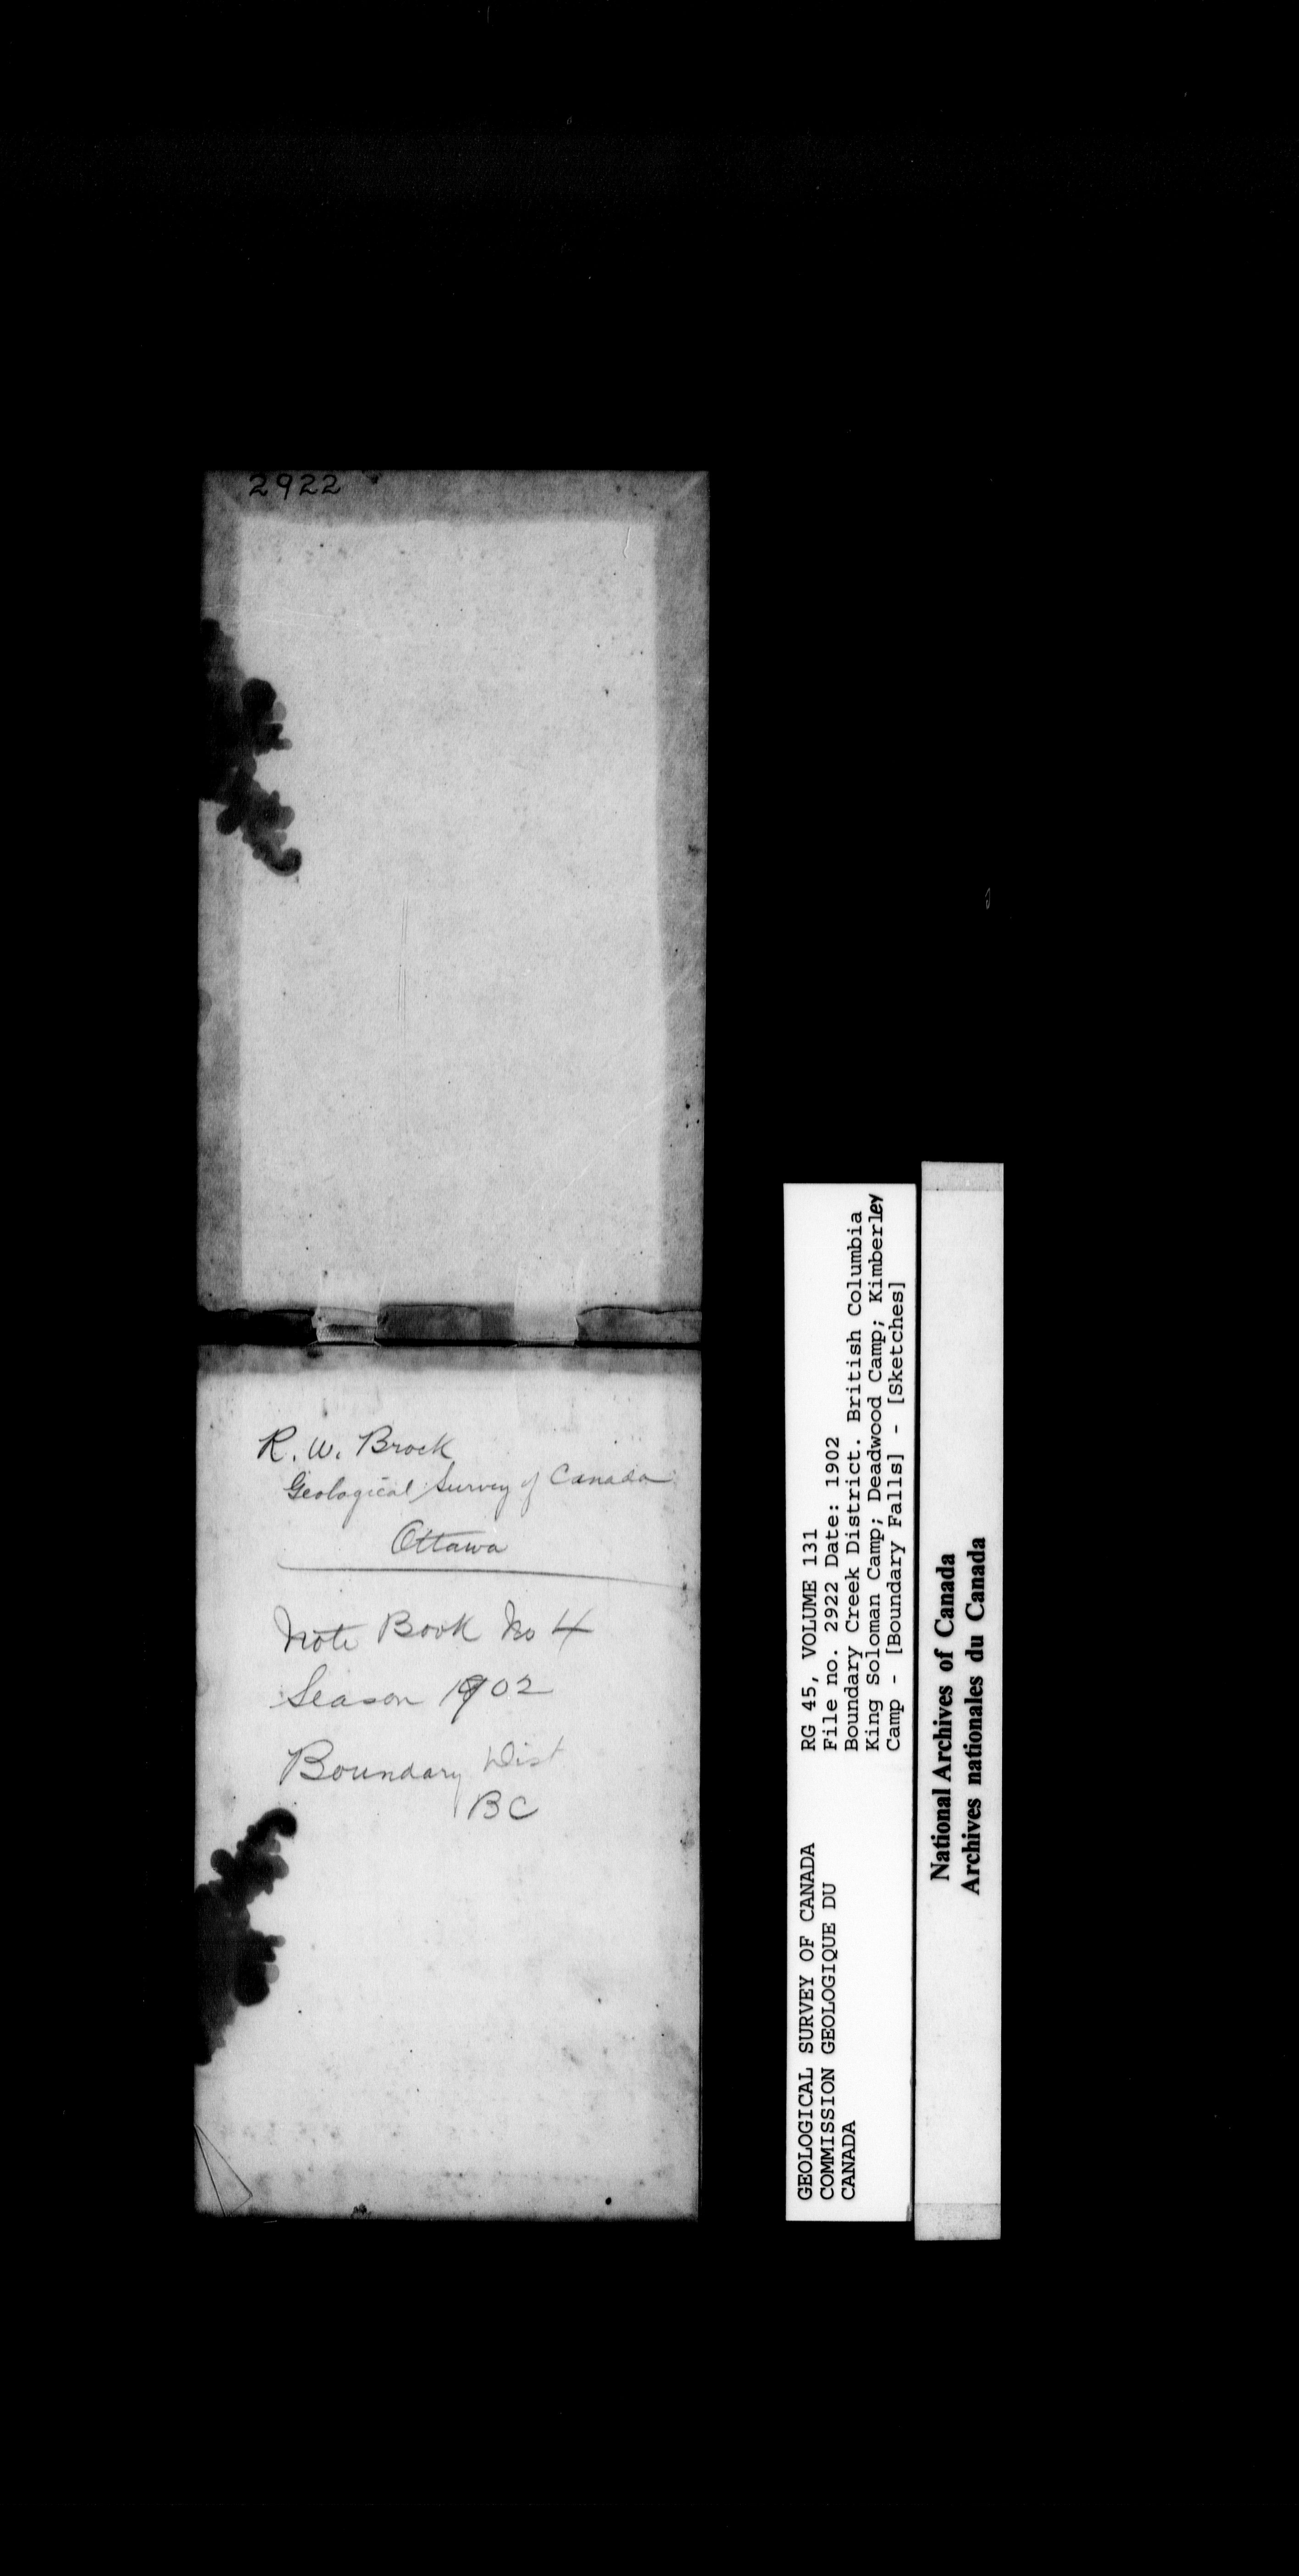 2922
R. W. Brock
Geological Survey of Canada
Ottawa
Note Book No 4
Season 1902
Boundary Dist
BC
GEOLOGICAL SURVEY OF CANADA
COMMISSION GEOLOGIQUE DU
CANADA
RG 45, VOLUME 131
File no. 2922 Date: 1902
Boundary Creek District. British Columbia
King Soloman Camp; Deadwood Camp; Kimberley
Camp - [Boundary Falls] - [Sketches]
National Archives of Canada
Archives nationales du Canada